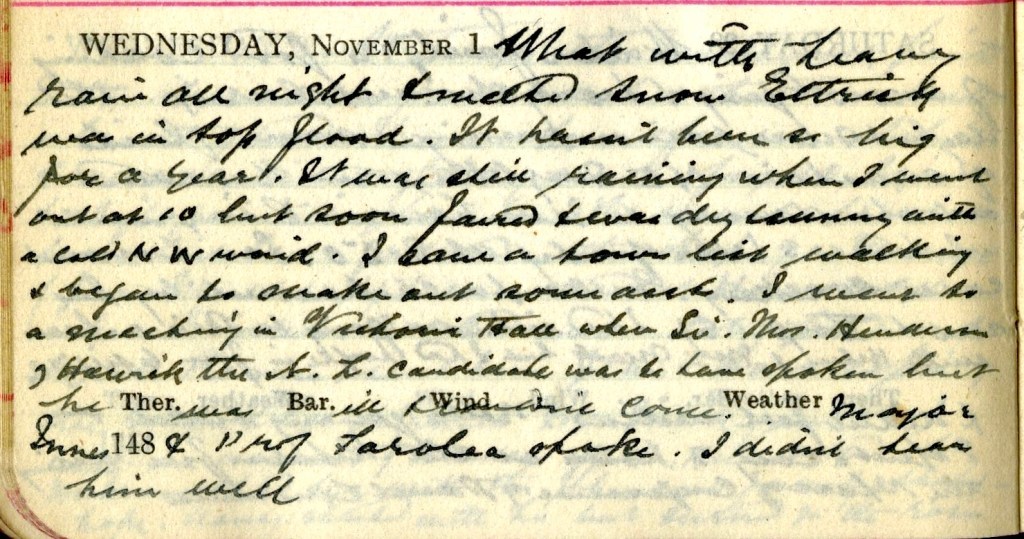 WEDNESDAY, NOVEMBER 1 What with heavy
rain all night & melted snow Ettrick
was in top flood. It hasn't been so big
for a year. It was still raining when I went
out at 10 but soon faired & was dry & sunny with
a cold N W wind. I saw a town list walking
& began to make out some accts. I went to
a meeting in Victoria Hall when Sir. Thos. Henderson
, Hawick the N. L. candidate was to have spoken but
he Ther. was Bar. ill & Wind come. Weather Major
Innes 148 & Prof spoke. I didn't hear
him well